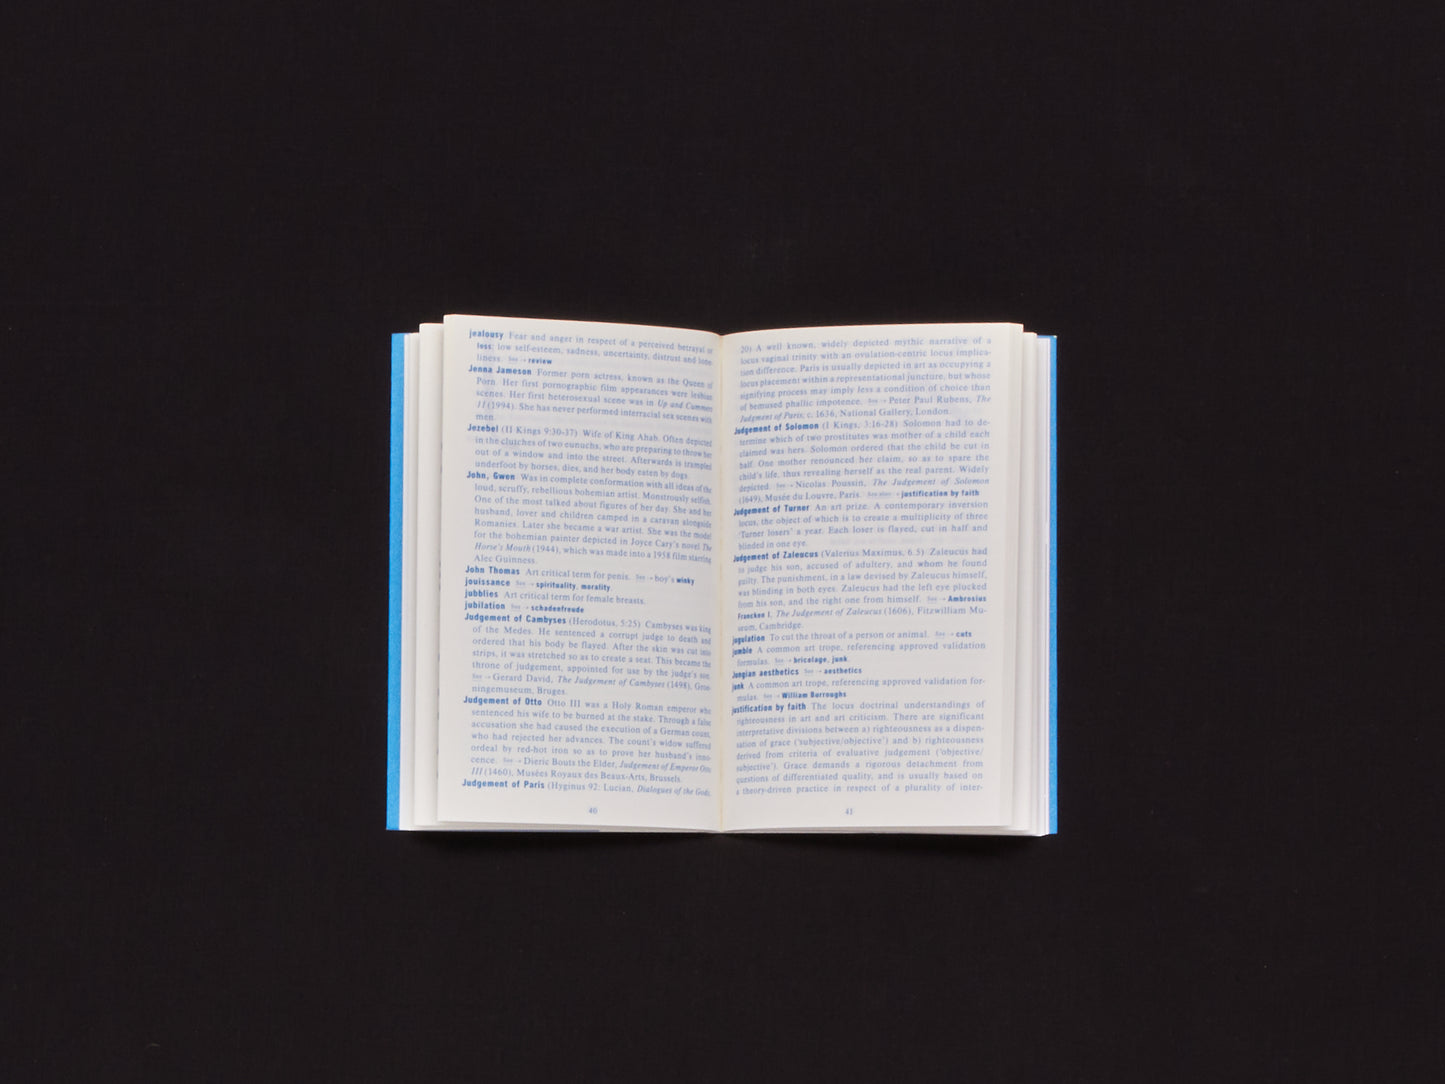 jealousy Fear and anger in respect of a perceived betrayal or
loss; low self-esteem, sadness, uncertainty, distrust and lone-
liness. See → review
Jenna Jameson Former porn actress, known as the Queen of
Porn. Her first pornographic film appearances were lesbian
scenes. Her first heterosexual scene was in Up and Cummers
11 (1994). She has never performed interracial sex scenes with
men.
Jezebel (II Kings 9:30-37) Wife of King Ahab. Often depicted
in the clutches of two eunuchs, who are preparing to throw her
out of a window and into the street. Afterwards is trampled
underfoot by horses, dies, and her body eaten by dogs.
John, Gwen Was in complete conformation with all ideas of the
loud, scruffy, rebellious bohemian artist. Monstrously selfish.
One of the most talked about figures of her day. She and her
husband, lover and children camped in a caravan alongside
Romanies. Later she became a war artist. She was the model
for the bohemian painter depicted in Joyce Cary's novel The
Horse's Mouth (1944), which was made into a 1958 film starring
Alec Guinness.
John Thomas Art critical term for penis. See → boy's winky
jouissance See → spirituality, morality.
jubblies Art critical term for female breasts.
jubilation See → schadenfreude
Judgement of Cambyses (Herodotus, 5:25) Cambyses was king
of the Medes. He sentenced a corrupt judge to death and
ordered that his body be flayed. After the skin was cut into
strips, it was stretched so as to create a seat. This became the
throne of judgement, appointed for use by the judge's son.
See → Gerard David, The Judgement of Cambyses (1498), Groe-
ningemuseum, Bruges.
Judgement of Otto Otto III was a Holy Roman emperor who
sentenced his wife to be burned at the stake. Through a false
accusation she had caused the execution of a German count,
who had rejected her advances. The count's widow suffered
ordeal by red-hot iron so as to prove her husband's inno-
cence. See → Dieric Bouts the Elder, Judgement of Emperor Otto
III (1460), Musées Royaux des Beaux-Arts, Brussels.
Judgement of Paris (Hyginus 92: Lucian, Dialogues of the Gods,
40
20) A well known, widely depicted mythic narrative of a
locus vaginal trinity with an ovulation-centric locus implica-
tion difference. Paris is usually depicted in art as occupying a
locus placement within a representational juncture, but whose
signifying process may imply less a condition of choice than
of bemused phallic impotence. See → Peter Paul Rubens, The
Judgment of Paris, c. 1636, National Gallery, London.
Judgement of Solomon (I Kings, 3:16-28) Solomon had to de-
termine which of two prostitutes was mother of a child each
claimed was hers. Solomon ordered that the child be cut in
half. One mother renounced her claim, so as to spare the
child's life, thus revealing herself as the real parent. Widely
depicted. See → Nicolas Poussin, The Judgement of Solomon
(1649), Musée du Louvre, Paris. See also → justification by faith
Judgement of Turner An art prize. A contemporary inversion
locus, the object of which is to create a multiplicity of three
'Turner losers' a year. Each loser is flayed, cut in half and
blinded in one eye.
Judgement of Zaleucus (Valerius Maximus, 6.5) Zaleucus had
to judge his son, accused of adultery, and whom he found
guilty. The punishment, in a law devised by Zaleucus himself,
was blinding in both eyes. Zaleucus had the left eye plucked
from his son, and the right one from himself. See → Ambrosius
Francken I, The Judgement of Zaleucus (1606), Fitzwilliam Mu-
seum, Cambridge.
jugulation To cut the throat of a person or animal. See → cuts
jumble A common art trope, referencing approved validation
formulas. See → bricolage, junk.
Jungian aesthetics See → aesthetics
junk A common art trope, referencing approved validation for-
mulas. See → William Burroughs
justification by faith The locus doctrinal understandings of
righteousness in art and art criticism. There are significant
interpretative divisions between a) righteousness as a dispen-
sation of grace ('subjective/objective') and b) righteousness
derived from criteria of evaluative judgement ('objective/
subjective'). Grace demands a rigorous detachment from
questions of differentiated quality, and is usually based on
a theory-driven practice in respect of a plurality of inter-
41